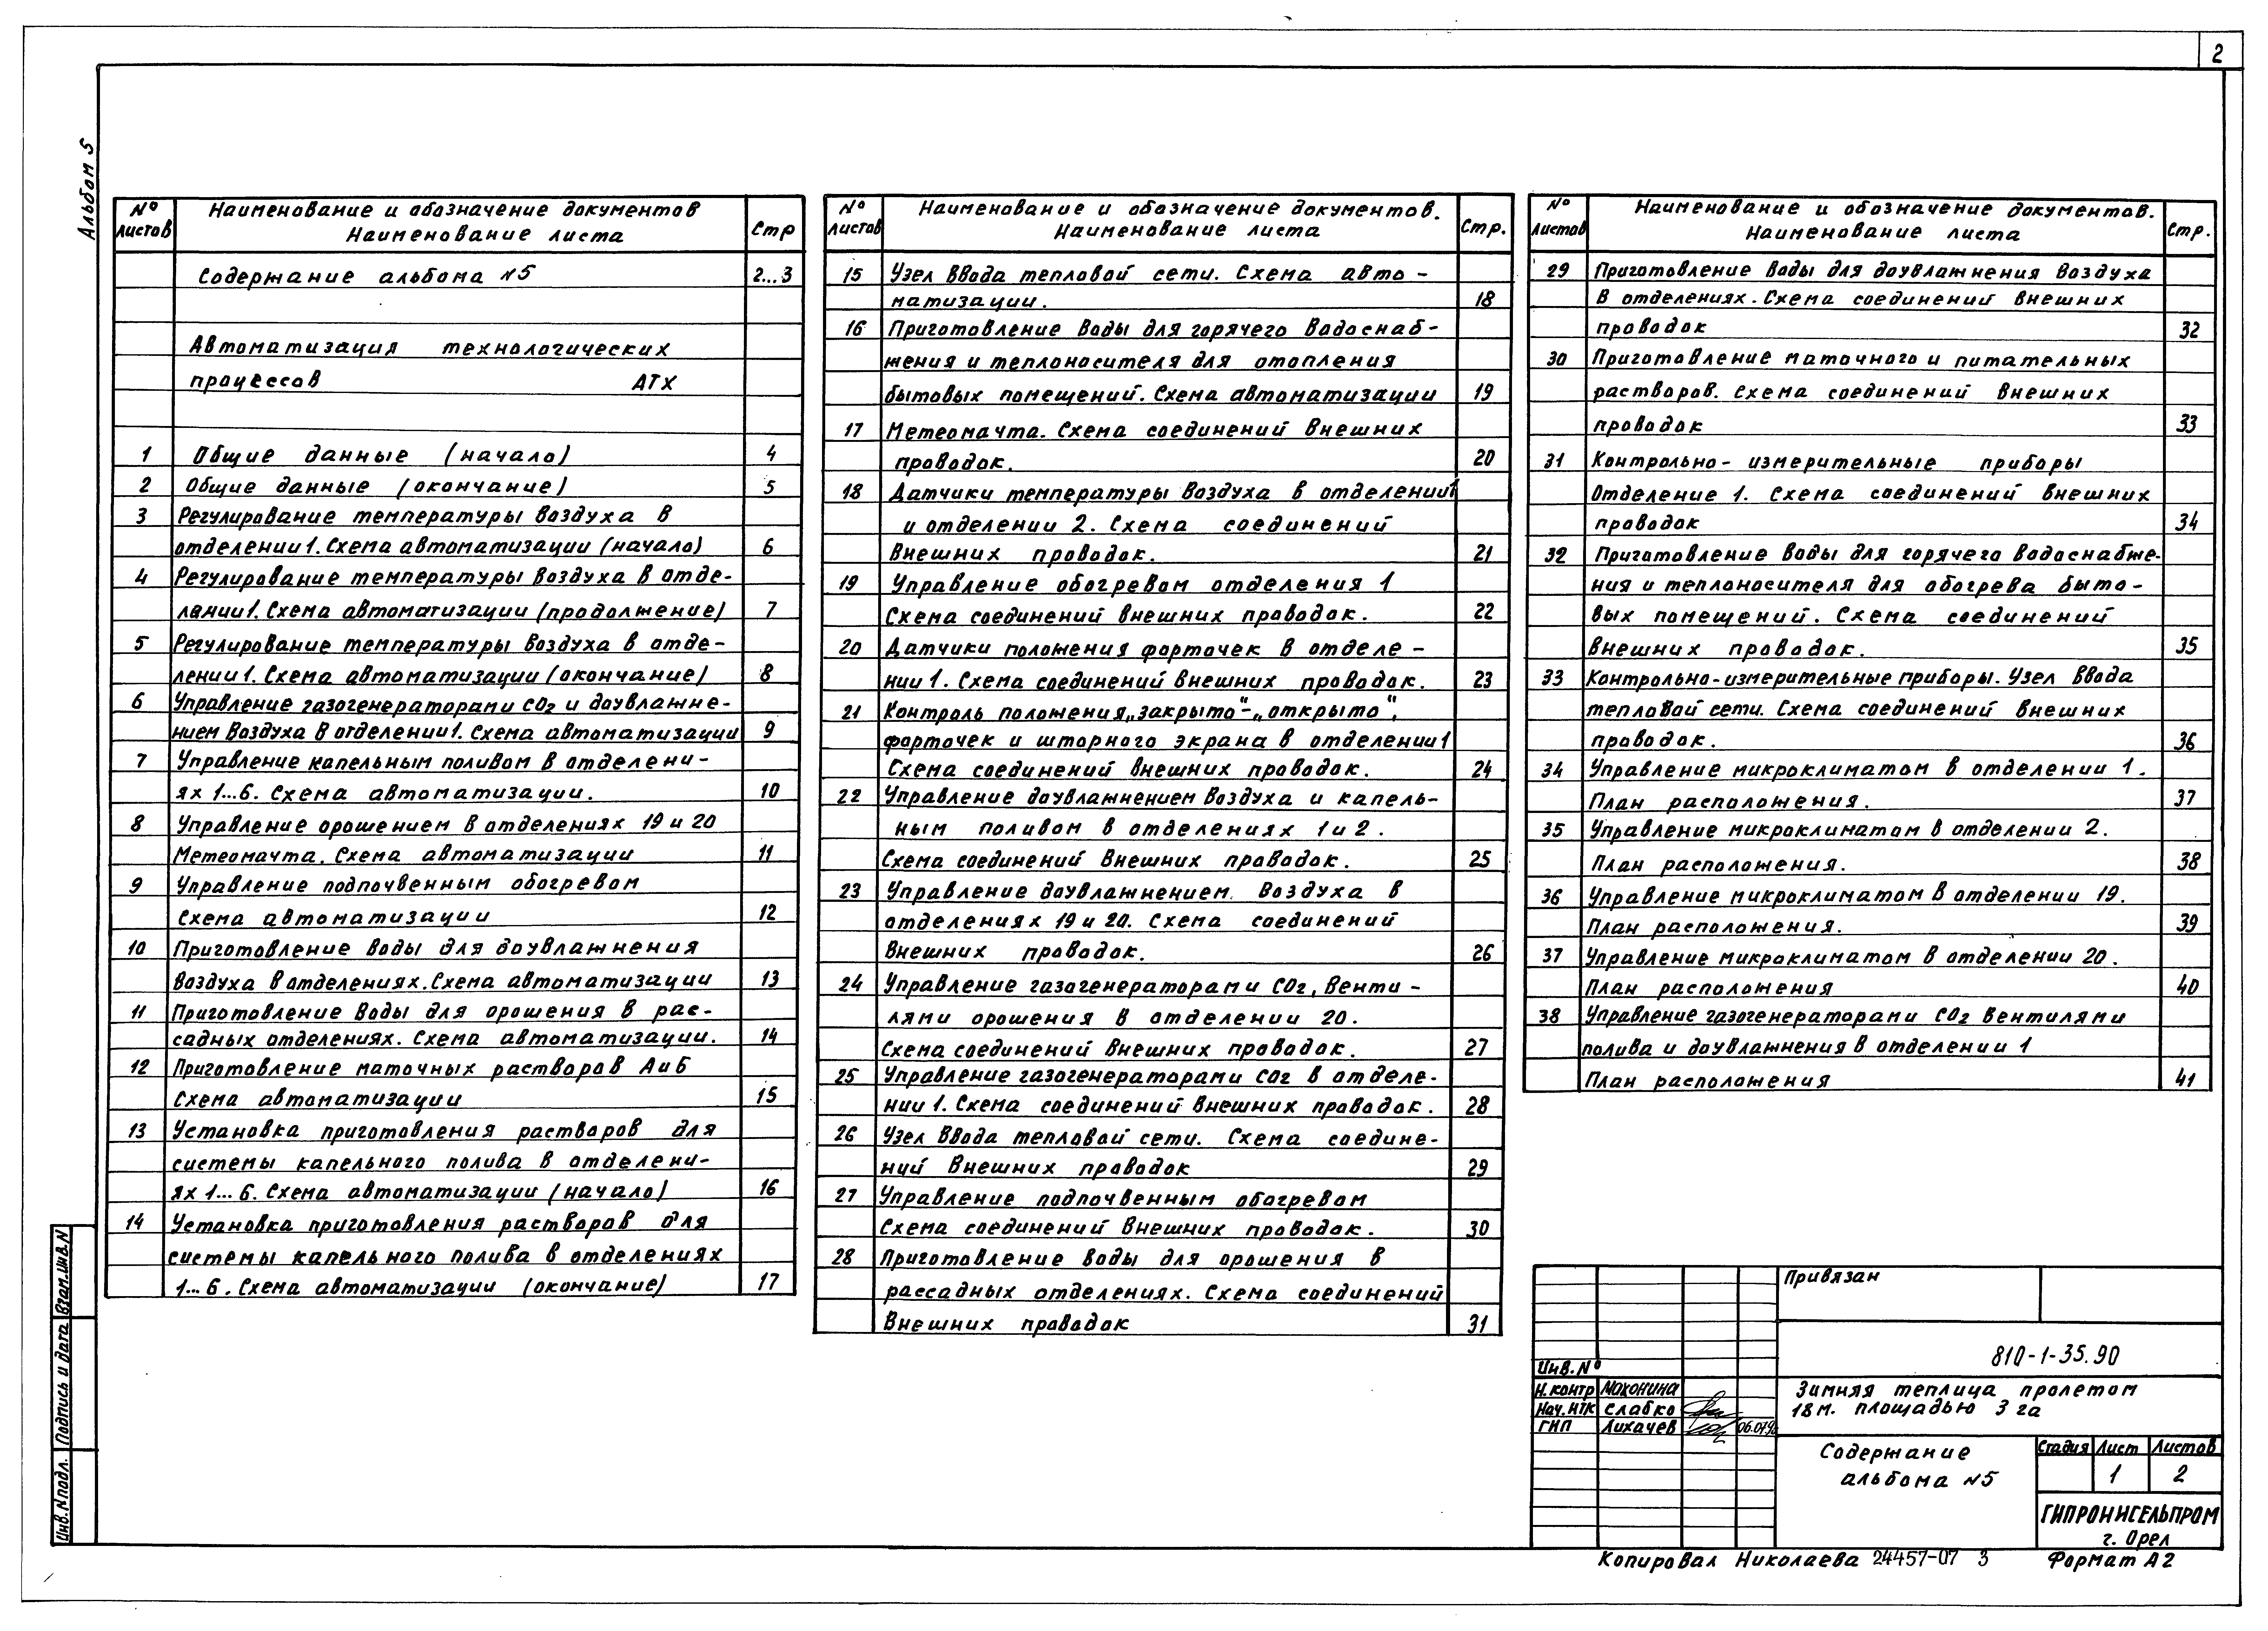 2
Альбом 5
№ листов
Наименование и обозначение документов
Наименование листа
Стр
Содержание альбома №5 2...3
Автоматизация технологических
процессов АТХ
1 Общие данные (начало) 4
2 Общие данные (окончание) 5
3 Регулирование температуры воздуха в
отделении 1. Схема автоматизации (начало) 6
4 Регулирование температуры воздуха в отде-
лении 1. Схема автоматизации (продолжение) 7
5 Регулирование температуры воздуха в отде-
лении 1. Схема автоматизации (окончание) 8
6 Управление газогенераторами CO2 и доувлажне-
нием воздуха в отделении 1. Схема автоматизации 9
7 Управление капельным поливом в отделени-
ях 1...6. Схема автоматизации. 10
8 Управление орошением в отделениях 19 и 20
Метеомачта. Схема автоматизации 11
9 Управление подпочвенным обогревом
Схема автоматизации 12
10 Приготовление воды для доувлажнения
воздуха в отделениях. Схема автоматизации 13
11 Приготовление воды для орошения в рас-
садных отделениях. Схема автоматизации. 14
12 Приготовление маточных растворов А и Б
Схема автоматизации 15
13 Установка приготовления растворов для
системы капельного полива в отделени-
ях 1...6. Схема автоматизации (начало) 16
14 Установка приготовления растворов для
системы капельного полива в отделениях
1...6. Схема автоматизации (окончание) 17
№ листов
Наименование и обозначение документов.
Наименование листа
Стр.
15 Узел ввода тепловой сети. Схема авто-
матизации. 18
16 Приготовление воды для горячего водоснаб-
жения и теплоносителя для отопления
бытовых помещений. Схема автоматизации 19
17 Метеомачта. Схема соединений внешних
проводок. 20
18 Датчики температуры воздуха в отделении 1
и отделении 2. Схема соединений
внешних проводок. 21
19 Управление обогревом отделения 1
Схема соединений внешних проводок. 22
20 Датчики положения форточек в отделе-
нии 1. Схема соединений внешних проводок. 23
21 Контроль положения „закрыто"-„открыто",
форточек и шторного экрана в отделении 1
Схема соединений внешних проводок. 24
22 Управление доувлажнением воздуха и капель-
ным поливом в отделениях 1 и 2.
Схема соединений внешних проводок. 25
23 Управление доувлажнением воздуха в
отделениях 19 и 20. Схема соединений
внешних проводок. 26
24 Управление газогенераторами CO2, венти-
лями орошения в отделении 20.
Схема соединений внешних проводок. 27
25 Управление газогенераторами CO2 в отделе-
нии 1. Схема соединений внешних проводок. 28
26 Узел ввода тепловой сети. Схема соедине-
ний внешних проводок 29
27 Управление подпочвенным обогревом
Схема соединений внешних проводок. 30
28 Приготовление воды для орошения в
рассадных отделениях. Схема соединений
внешних проводок 31
№ листов
Наименование и обозначение документов.
Наименование листа
Стр.
29 Приготовление воды для доувлажнения воздуха
в отделениях. Схема соединений внешних
проводок 32
30 Приготовление маточного и питательных
растворов. Схема соединений внешних
проводок 33
31 Контрольно-измерительные приборы
Отделение 1. Схема соединений внешних
проводок 34
32 Приготовление воды для горячего водоснабже-
ния и теплоносителя для обогрева быто-
вых помещений. Схема соединений
внешних проводок. 35
33 Контрольно-измерительные приборы. Узел ввода
тепловой сети. Схема соединений внешних
проводок. 36
34 Управление микроклиматом в отделении 1.
План расположения. 37
35 Управление микроклиматом в отделении 2.
План расположения. 38
36 Управление микроклиматом в отделении 19.
План расположения. 39
37 Управление микроклиматом в отделении 20.
План расположения 40
38 Управление газогенераторами CO2 вентилями
полива и доувлажнения в отделении 1
План расположения 41
Инв.№подл. Подпись и дата Взам.инв.№
Привязан
Инв. №
810-1-35.90
Н.контр Маконина
Нач.НТК Слабко
ГИП Лихачев
Зимняя теплица пролетом
18м. площадью 3 га
Содержание
альбома №5
Стадия Лист Листов
1 2
ГИПРОНИСЕЛЬПРОМ
г. Орел
Копировал Николаева 24457-07 3 Формат А2